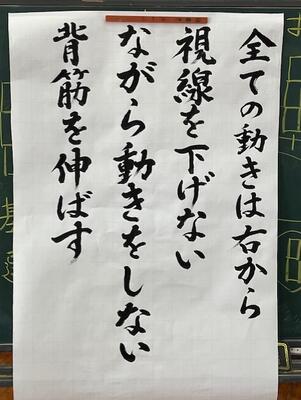 全ての動きは右から
視線を下げない
ながら動きをしない
背筋を伸ばす